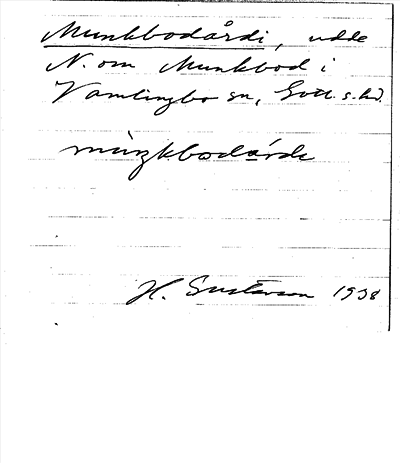 Munkbodårdi, udde
N. om Munkbod i
Vamlingbo sn, Gotl. s. hd.
mùŋkbodárdi
H. Gustavson 1938